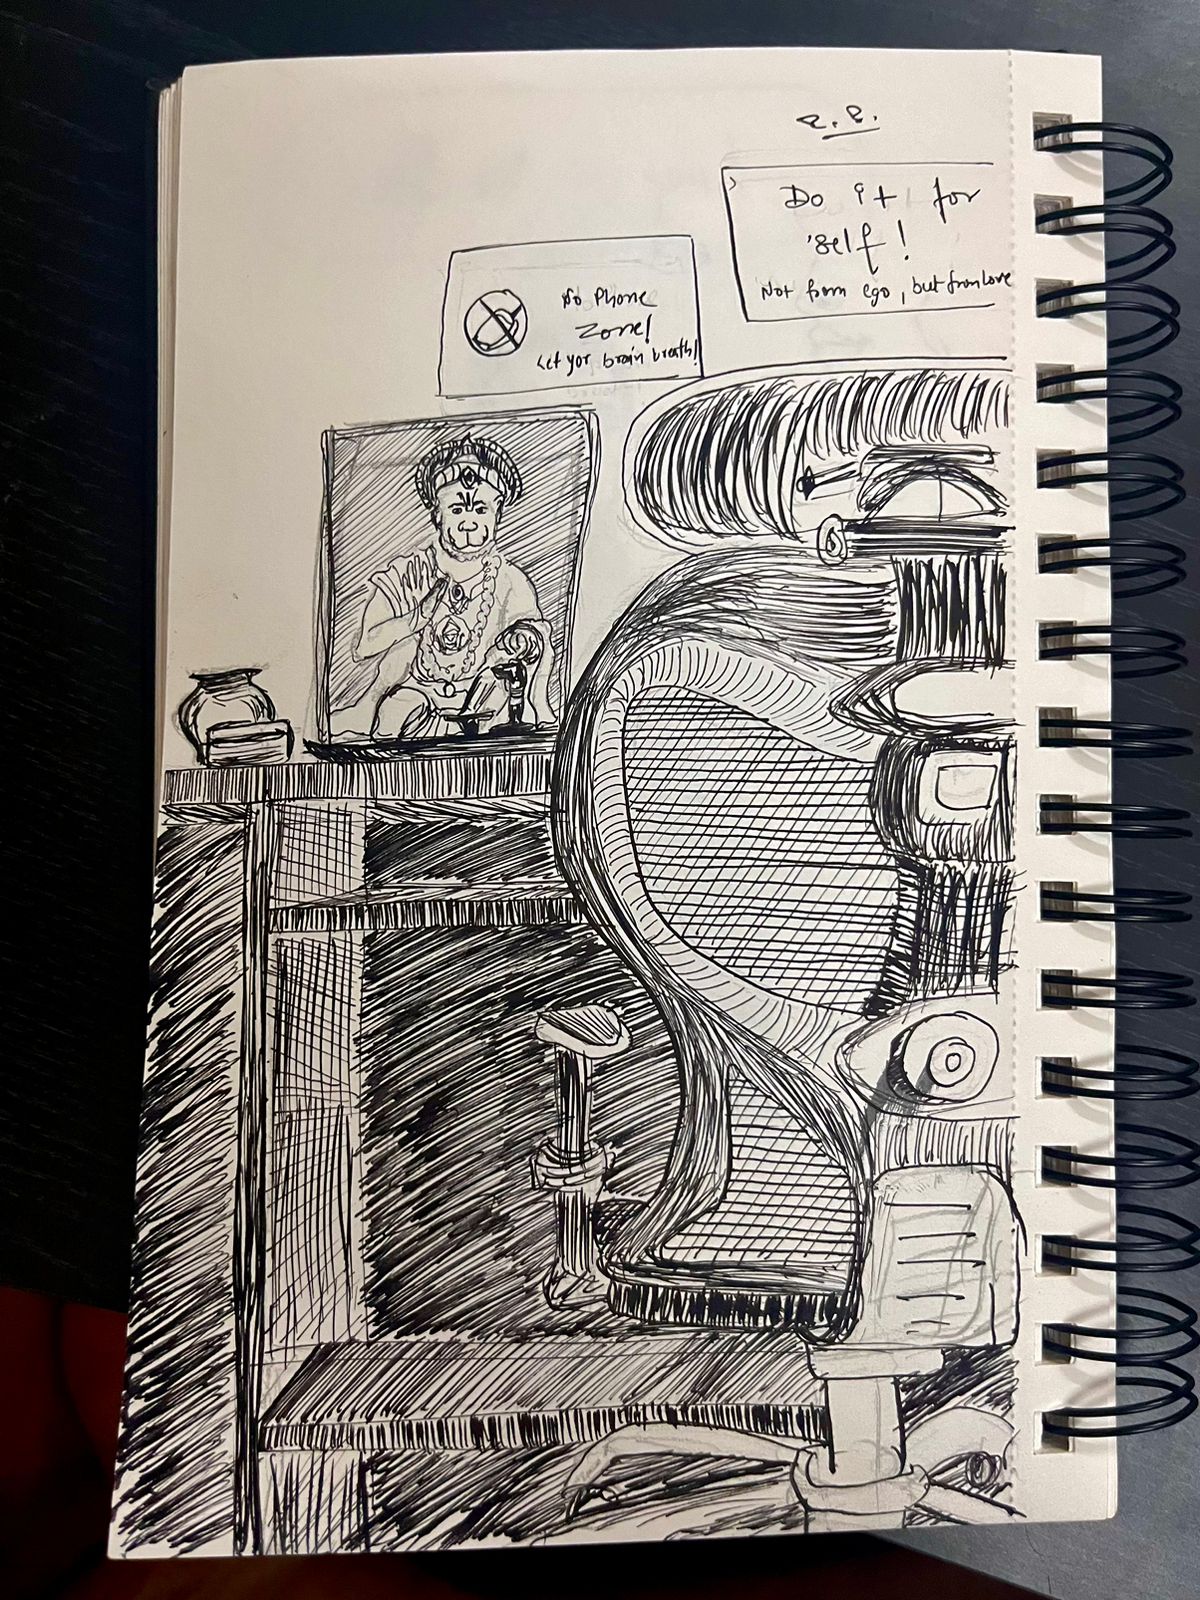 Do it for
'self!
Not from ego, but from love
No Phone
Zone!
Let yor brain breath!